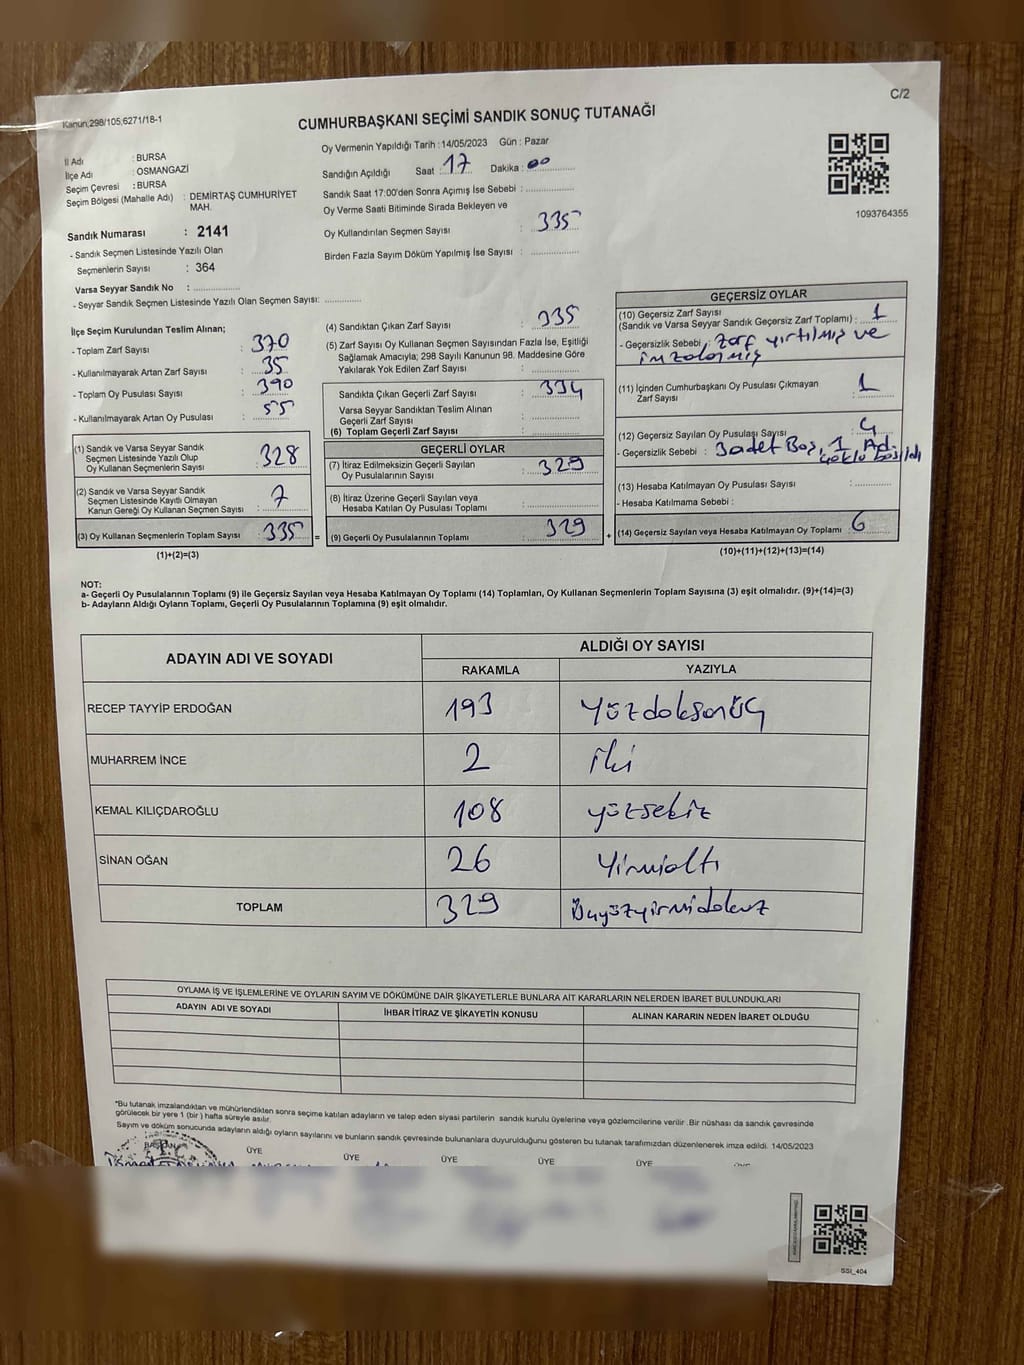 C/2
Kanun;298/105,6271/18-1
CUMHURBAŞKANI SEÇİMİ SANDIK SONUÇ TUTANAĞI
İl Adı : BURSA
İlçe Adı : OSMANGAZİ
Seçim Çevresi : BURSA
Seçim Bölgesi (Mahalle Adı) : DEMİRTAŞ CUMHURİYET
MAH.
Sandık Numarası : 2141
- Sandık Seçmen Listesinde Yazılı Olan
Seçmenlerin Sayısı : 364
Varsa Seyyar Sandık No :
- Seyyar Sandık Seçmen Listesinde Yazılı Olan Seçmen Sayısı:
Oy Vermenin Yapıldığı Tarih :14/05/2023 Gün : Pazar
Sandığın Açıldığı Saat : 17 Dakika : 00
Sandık Saat 17:00'den Sonra Açımış İse Sebebi :
Oy Verme Saati Bitiminde Sırada Bekleyen ve
Oy Kullandırılan Seçmen Sayısı : 335
Birden Fazla Sayım Döküm Yapılmış İse Sayısı :
1093764355
İlçe Seçim Kurulundan Teslim Alınan;
- Toplam Zarf Sayısı : 370
- Kullanılmayarak Artan Zarf Sayısı : 35
- Toplam Oy Pusulası Sayısı : 390
- Kullanılmayarak Artan Oy Pusulası : 55
(1) Sandık ve Varsa Seyyar Sandık
Seçmen Listesinde Yazılı Olup
Oy Kullanan Seçmenlerin Sayısı : 328
(2) Sandık ve Varsa Seyyar Sandık
Seçmen Listesinde Kayıtlı Olmayan
Kanun Gereği Oy Kullanan Seçmen Sayısı : 7
(3) Oy Kullanan Seçmenlerin Toplam Sayısı : 335
(1)+(2)=(3)
(4) Sandıktan Çıkan Zarf Sayısı : 335
(5) Zarf Sayısı Oy Kullanan Seçmen Sayısından Fazla İse, Eşitliği
Sağlamak Amacıyla; 298 Sayılı Kanunun 98. Maddesine Göre
Yakılarak Yok Edilen Zarf Sayısı :
Sandıkta Çıkan Geçerli Zarf Sayısı : 334
Varsa Seyyar Sandıktan Teslim Alınan
Geçerli Zarf Sayısı :
(6) Toplam Geçerli Zarf Sayısı :
GEÇERLİ OYLAR
(7) İtiraz Edilmeksizin Geçerli Sayılan
Oy Pusulasının Sayısı : 329
(8) İtiraz Üzerine Geçerli Sayılan veya
Hesaba Katılan Oy Pusulası Toplamı :
= (9) Geçerli Oy Pusulalarının Toplamı : 329 +
GEÇERSİZ OYLAR
(10) Geçersiz Zarf Sayısı
(Sandık ve Varsa Seyyar Sandık Geçersiz Zarf Toplamı) : 1
- Geçersizlik Sebebi : Zarf yırtılmış ve
imzalamış
(11) İçinden Cumhurbaşkanı Oy Pusulası Çıkmayan
Zarf Sayısı : 1
(12) Geçersiz Sayılan Oy Pusulası Sayısı : 4
- Geçersizlik Sebebi : 3 adet Boş, 1 Ad.
çoklu basıldı
(13) Hesaba Katılmayan Oy Pusulası Sayısı :
- Hesaba Katılmama Sebebi :
(14) Geçersiz Sayılan veya Hesaba Katılmayan Oy Toplamı : 6
(10)+(11)+(12)+(13)=(14)
NOT:
a- Geçerli Oy Pusulalarının Toplamı (9) ile Geçersiz Sayılan veya Hesaba Katılmayan Oy Toplamı (14) Toplamları, Oy Kullanan Seçmenlerin Toplam Sayısına (3) eşit olmalıdır. (9)+(14)=(3)
b- Adayların Aldığı Oyların Toplamı, Geçerli Oy Pusulalarının Toplamına (9) eşit olmalıdır.
ADAYIN ADI VE SOYADI
ALDIĞI OY SAYISI
RAKAMLA YAZIYLA
RECEP TAYYİP ERDOĞAN 193 Yüzdoksanüç
MUHARREM İNCE 2 iki
KEMAL KILIÇDAROĞLU 108 yüzsekiz
SİNAN OĞAN 26 Yirmialtı
TOPLAM 329 Üçyüzyirmidokuz
OYLAMA İŞ VE İŞLEMLERİNE VE OYLARIN SAYIM VE DÖKÜMÜNE DAİR ŞİKAYETLERLE BUNLARA AİT KARARLARIN NELERDEN İBARET BULUNDUKLARI
ADAYIN ADI VE SOYADI İHBAR İTİRAZ VE ŞİKAYETİN KONUSU ALINAN KARARIN NEDEN İBARET OLDUĞU
*Bu tutanak imzalandıktan ve mühürlendikten sonra seçime katılan adayların ve talep eden siyasi partilerin sandık kurulu üyelerine veya gözlemcilerine verilir .Bir nüshası da sandık çevresinde
görülecek bir yere 1 (bir ) hafta süreyle asılır.
Sayım ve döküm sonucunda adayların aldığı oyların sayılarını ve bunların sandık çevresinde bulunanlara duyurulduğunu gösteren bu tutanak tarafımızdan düzenlenerek imza edildi. 14/05/2023
BAŞKAN ÜYE ÜYE ÜYE ÜYE ÜYE
SSİ_404